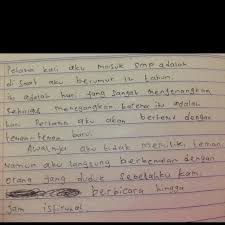 Pertama kali aku masuk SMP adalah
di saat aku berumur 12 tahun.
itu adalah hari yang sangat menyenangkan
sekaligus menegangkan karena itu adalah
hari Pertama aku akan bertemu dengan
teman-teman baru.
Awalnya aku tidak memiliki teman.
Namun aku langsung berkenalan dengan
orang yang duduk sebelahku kami
berbicara hingga
jam istirahat.